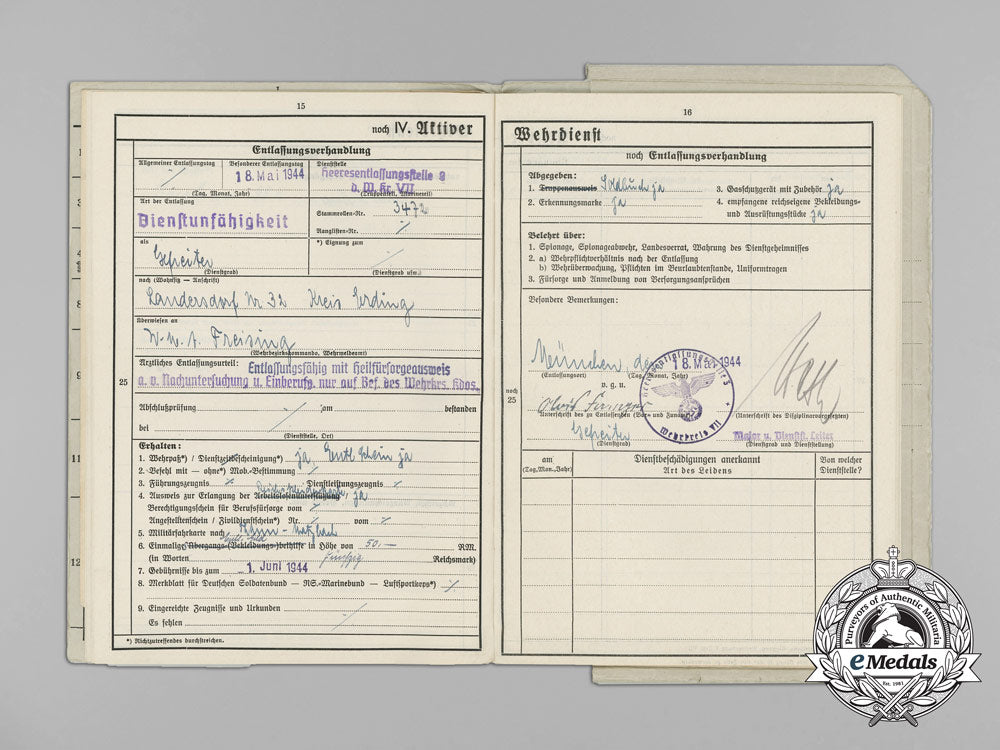 15
noch IV. Aktiver
Entlassungsverhandlung
Allgemeiner Entlassungstag
Besonderer Entlassungstag
Dienststelle
18. Mai 1944
Heeresentlassungsstelle 2
d. W. Kr. VII
(Tag, Monat, Jahr)
(Truppenteil, Marineteil)
Art der Entlassung
Dienstunfähigkeit
Stammrollen-Nr. 3472
Ranglisten-Nr.
als
*) Eignung zum
Gefreiter
(Dienstgrad)
(Dienstgrad usw.)
nach (Wohnsitz — Anschrift)
Landersdorf Nr 32 Kreis Erding
überwiesen an
W.M.A. Freising
(Wehrbezirkskommando, Wehrmeldeamt)
25
Ärztliches Entlassungsurteil: Entlassungsfähig mit Heilfürsorgeausweis
a. v. Nachuntersuchung u. Einberufg. nur auf Bef. des Wehrkrs. Kdos.
Abschlußprüfung am bestanden
bei
(Dienststelle, Ort)
Erhalten:
1. Wehrpaß*) / Dienstzeitbescheinigung*) ja Entl. Schein ja
2. Befehl mit — ohne*) Mob.-Bestimmung
3. Führungszeugnis Dienstleistungszeugnis
4. Ausweis zur Erlangung der Arbeitslosenunterstützung, ja
Berechtigungsschein für Berufsfürsorge vom
Angestelltenschein / Zivildienstschein*) Nr. vom
5. Militärfahrkarte nach
6. Einmalige Übergangs-(Bekleidungs-)beihilfe in Höhe von 50.— RM.
(in Worten fünfzig Reichsmark)
7. Gebührnisse bis zum 1. Juni 1944
8. Merkblatt für Deutschen Soldatenbund — NS.-Marinebund — Luftsportkorps*)
9. Eingereichte Zeugnisse und Urkunden
Es fehlen
*) Nichtzutreffendes durchstreichen.
16
Wehrdienst
noch Entlassungsverhandlung
Abgegeben:
1. Truppenausweis Soldbuch ja
2. Erkennungsmarke ja
3. Gasschutzgerät mit Zubehör ja
4. empfangene reichseigene Bekleidungs-
und Ausrüstungsstücke ja
Belehrt über:
1. Spionage, Spionageabwehr, Landesverrat, Wahrung des Dienstgeheimnisses
2. a) Wehrpflichtverhältnis nach der Entlassung
b) Wehrüberwachung, Pflichten im Beurlaubtenstande, Uniformtragen
3. Fürsorge und Anmeldung von Versorgungsansprüchen
Besondere Bemerkungen:
München, den 18. Mai 1944
(Entlassungsort) (Tag, Monat, Jahr)
v. g. u.
noch
25
Alois
Unterschrift des zu Entlassenden (Vor- und Zuname)
(Unterschrift des Disziplinarvorgesetzten)
Gefreiter
(Dienstgrad)
Major u. Dienstst. Leiter
(Dienstgrad und Dienststellung)
Heeresentlassungsstelle
Wehrkreis VII
am
(Tag, Mon., Jahr)
Dienstbeschädigungen anerkannt
Art des Leidens
Von welcher
Dienststelle?
Purveyors of Authentic Militaria
eMedals
Est. 1981